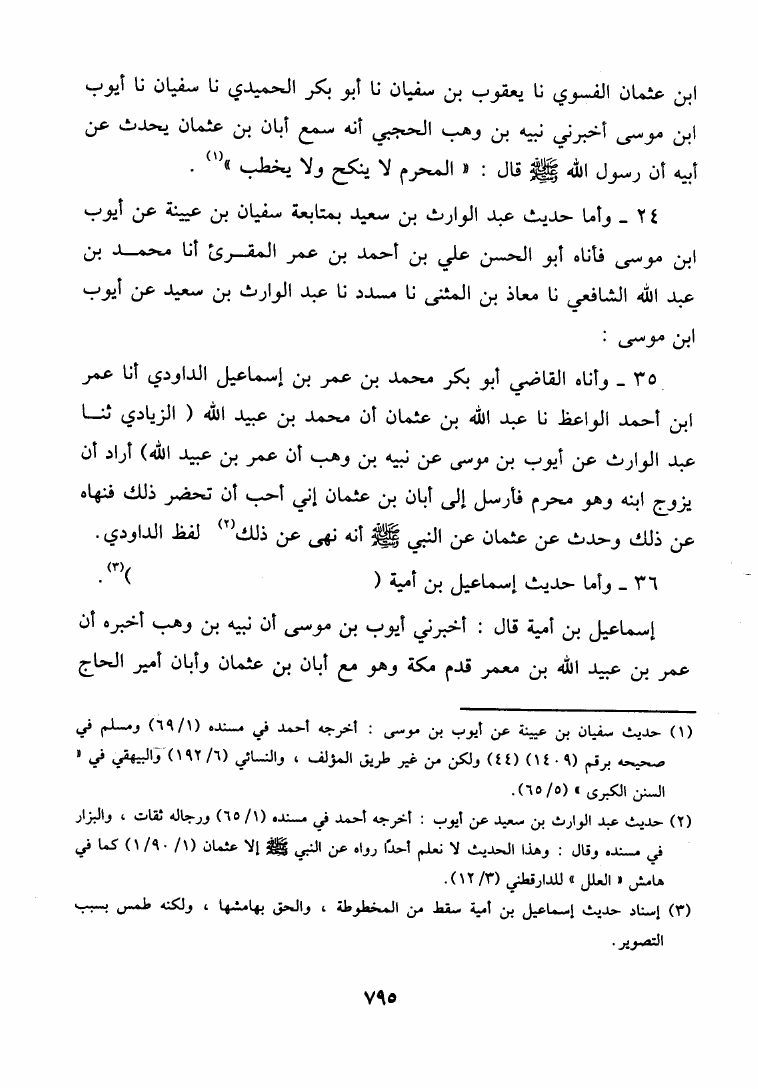 ابن عثمان الفسوي نا يعقوب بن سفيان نا أبو بكر الحميدي نا سفيان نا أيوب
ابن موسى أخبرني نبيه بن وهب الحجبي أنه سمع أبان بن عثمان يحدث عن
أبيه أن رسول الله ﷺ قال : « المحرم لا ينكح ولا يخطب »(١) .
٢٤ ـ وأما حديث عبد الوارث بن سعيد بمتابعة سفيان بن عيينة عن أيوب
ابن موسى فأناه أبو الحسن علي بن أحمد بن عمر المقـرئ أنا محمـد بن
عبد الله الشافعي نا معاذ بن المثنى نا مسدد نا عبد الوارث بن سعيد عن أيوب
ابن موسى :
٣٥ ـ وأناه القاضي أبو بكر محمد بن عمر بن إسماعيل الداودي أنا عمر
ابن أحمد الواعظ نا عبد الله بن عثمان أن محمد بن عبيد الله ( الزيادي ثنـا
عبد الوارث عن أيوب بن موسى عن نبيه بن وهب أن عمر بن عبيد الله) أراد أن
يزوج ابنه وهو محرم فأرسل إلى أبان بن عثمان إني أحب أن تحضر ذلك فنهاه
عن ذلك وحدث عن عثمان عن النبي ﷺ أنه نهى عن ذلك(٢) لفظ الداودي.
٣٦ ـ وأما حديث إسماعيل بن أمية ( )(٣).
إسماعيل بن أمية قال : أخبرني أيوب بن موسى أن نبيه بن وهب أخبره أن
عمر بن عبيد الله بن معمر قدم مكة وهو مع أبان بن عثمان وأبان أمير الحاج
(١) حديث سفيان بن عيينة عن أيوب بن موسى : أخرجه أحمد في مسنده (٦٩/١) ومسلم في
صحيحه برقم (١٤٠٩) (٤٤) ولكن من غير طريق المؤلف ، والنسائي (١٩٢/٦) والبيهقي في «
السنن الكبرى » (٦٥/٥).
(٢) حديث عبد الوارث بن سعيد عن أيوب : أخرجه أحمد في مسنده (٦٥/١) ورجاله ثقات ، والبزار
في مسنده وقال : وهذا الحديث لا نعلم أحدًا رواه عن النبي ﷺ إلا عثمان (١/٩٠/١) كما في
هامش « العلل » للدارقطني (١٢/٣).
(٣) إسناد حديث إسماعيل بن أمية سقط من المخطوطة ، والحق بهامشها ، ولكنه طمس بسبب
التصوير .
٧٩٥